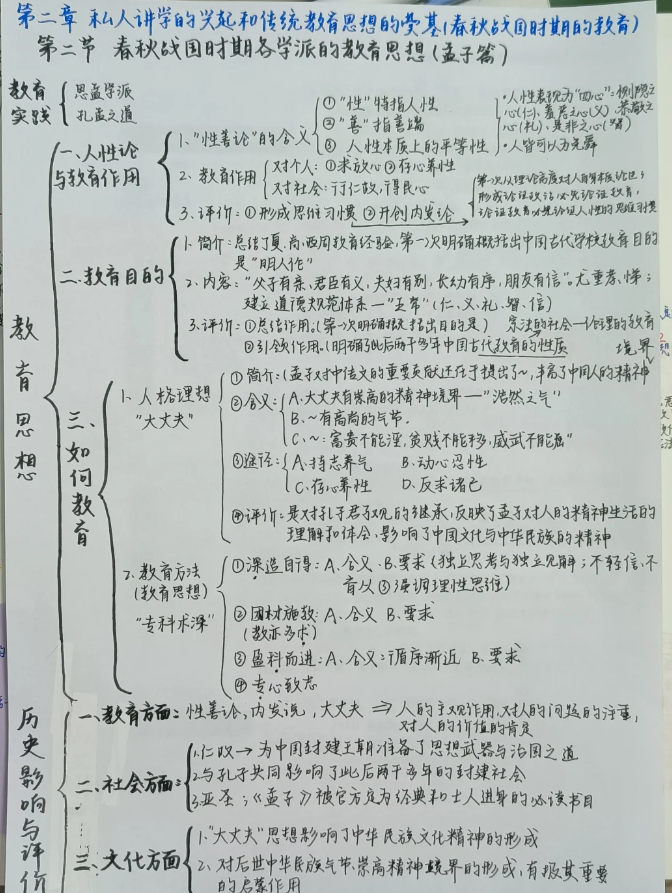 第二章 私人讲学的兴起和传统教育思想的奠基(春秋战国时期的教育)
第二节 春秋战国时期各学派的教育思想(孟子篇)
教育实践
思孟学派
孔孟之道
教育思想
一、人性论与教育作用
1、"性善论"的含义
① "性"特指人性
② "善"指善端
③ 人性本质上的平等性
·人性表现为"四心":恻隐之
心(仁)、羞恶之心(义)、恭敬之
心(礼)、是非之心(智)
·人皆可以为尧舜
2、教育作用
对个人:①求放心②存心养性
对社会:行仁政,得民心
3、评价:①形成思维习惯 ②开创内发论
第一次从理论高度对人的本质
形成论证政治必先论证教育,
论证教育必先论证人性的思维习惯
二、教育目的
1、简介:总结了夏、商、西周教育经验,第一次明确概括出中国古代学校教育目的
是"明人伦"
2、内容:"父子有亲、君臣有义,夫妇有别,长幼有序,朋友有信"。尤重孝、悌;
建立道德规范体系—"五常"(仁、义、礼、智、信)
3、评价:①总结作用。(第一次明确概括出目的是) 宗法的社会—伦理的教育
②引领作用。(明确了此后两千多年中国古代教育的性质
三、如何教育
1、人格理想
"大丈夫"
境界
①简介:(孟子对中传文的重要贡献还在于提出了~,丰富了中国人的精神
②含义:
A.大丈夫有崇高的精神境界—"浩然之气"
B、~有高尚的气节.
C、~:富贵不能淫,贫贱不能移,威武不能屈"
③途径:
A.持志养气 B.动心忍性
C.存心养性 D.反求诸己
④评价:是对孔子君子观的继承,反映了孟子对人的精神生活的
理解和体会,影响了中国文化与中华民族的精神
2、教育方法
(教育思想)
"专科术深"
①深造自得:A、含义 B.要求(独立思考与独立见解;不轻信、不
盲从③强调理性思维)
②因材施教:A、含义 B、要求
(教亦多术)
③盈科而进:A、含义:循序渐进 B、要求
④专心致志
历史影响与评价
一、教育方面:性善论,内发说,大丈夫 ⇒ 人的主观作用,对人的问题的注重,
对人的价值的肯定
二、社会方面:
1.仁政→为中国封建王朝准备了思想武器与治国之道
2.与孔子共同影响了此后两千多年的封建社会
3.亚圣;《孟子》被官方定为经典和士人进身的必读书目
三、文化方面
1、"大丈夫"思想影响了中华民族文化精神的形成
2、对后世中华民族气节、崇高精神境界的形成,有极其重要
的启蒙作用